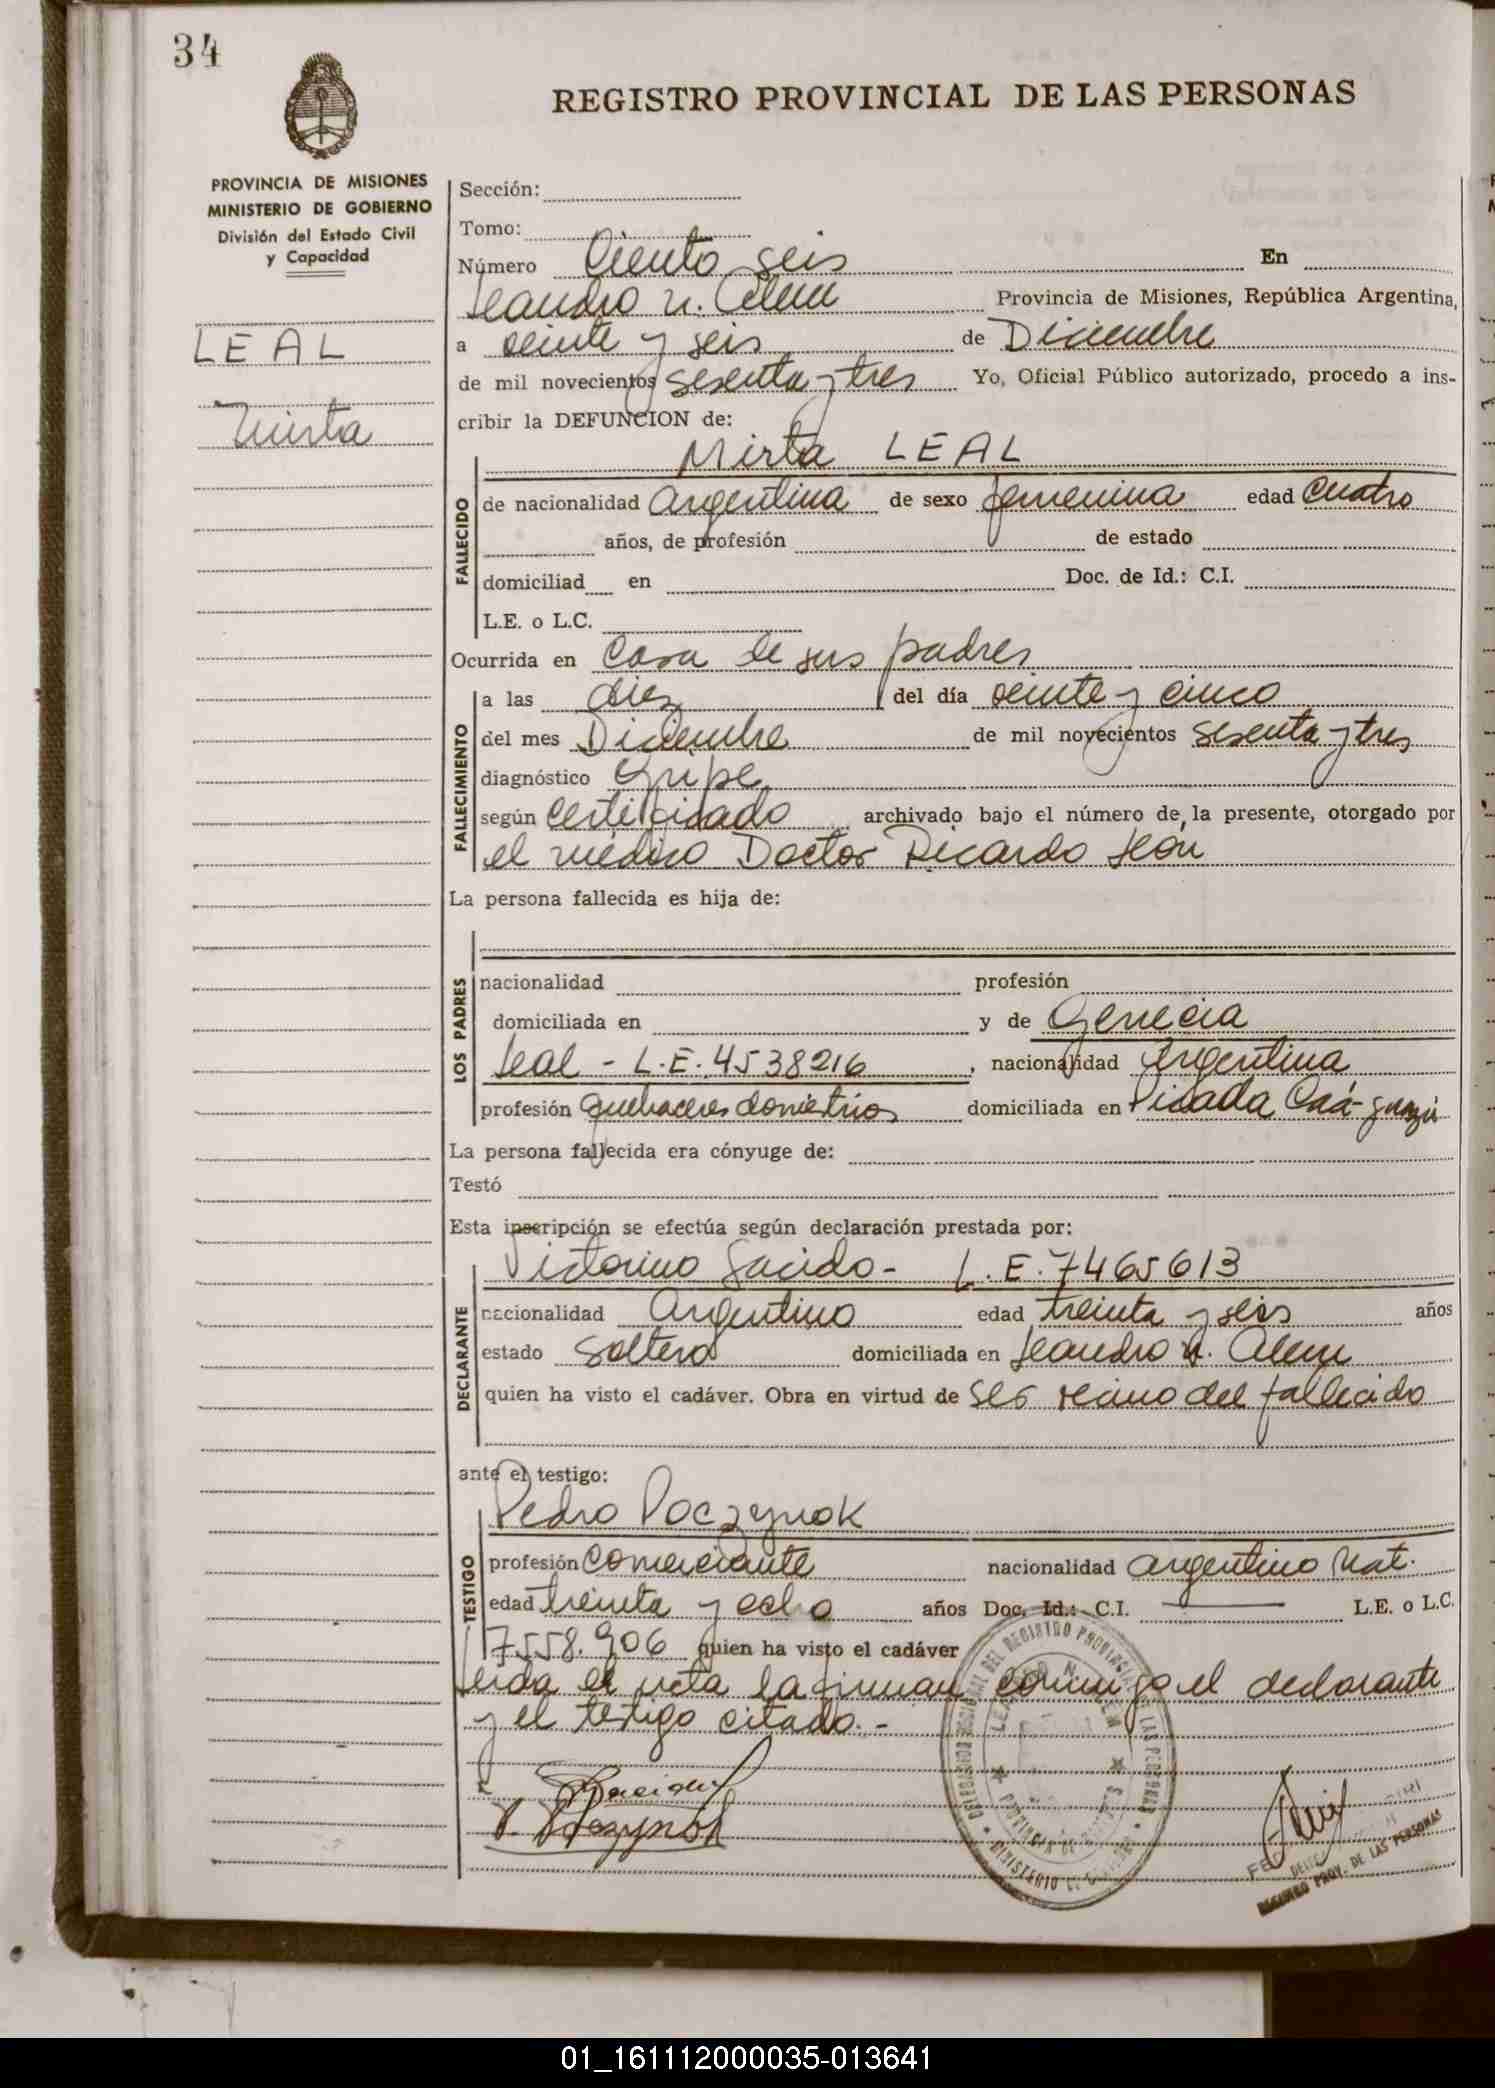 34
REGISTRO PROVINCIAL DE LAS PERSONAS
PROVINCIA DE MISIONES
MINISTERIO DE GOBIERNO
División del Estado Civil
y Capacidad
LEAL
Mirta
Sección:
Tomo:
Número Ciento seis En
Leandro N. Alem Provincia de Misiones, República Argentina,
a veinte y seis de Diciembre
de mil novecientos sesenta y tres Yo, Oficial Público autorizado, procedo a ins-
cribir la DEFUNCION de:
Mirta LEAL
FALLECIDO
de nacionalidad Argentina de sexo femenina edad cuatro
años, de profesión de estado
domiciliad en Doc. de Id.: C.I.
L.E. o L.C.
Ocurrida en Casa de sus padres
FALLECIMIENTO
a las diez del día veinte y cinco
del mes Diciembre de mil novecientos sesenta y tres
diagnóstico Gripe
según certificado archivado bajo el número de la presente, otorgado por
el médico Doctor Ricardo León
La persona fallecida es hija de:
LOS PADRES
nacionalidad profesión
domiciliada en y de Generia
Leal - L.E. 4538216, nacionalidad Argentina
profesión quehaceres domésticos domiciliada en Picada Caá-guazú
La persona fallecida era cónyuge de:
Testó
Esta inscripción se efectúa según declaración prestada por:
DECLARANTE
Victorino Sacido- L.E. 7465613
nacionalidad Argentino edad treinta y seis años
estado Soltero domiciliada en Leandro N. Alem
quien ha visto el cadáver. Obra en virtud de ser vecino del fallecido
ante el testigo:
TESTIGO
Pedro Poczynok
profesión Comerciante nacionalidad argentino Nat.
edad treinta y ocho años Doc. Id.: C.I. — L.E. o L.C.
7558.906 quien ha visto el cadáver
Leida el acta la firman conmigo el declarante
y el testigo citado.-
P. Poczynok
DEL REGISTRO PROVINCIAL DE LAS PERSONAS
LEANDRO N. ALEM
PROVINCIA DE MISIONES
MINISTERIO DE GOBIERNO
REGISTRO PROV. DE LAS PERSONAS
01_161112000035-013641